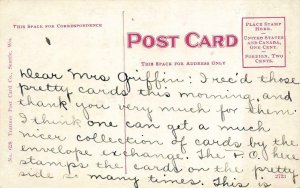 THIS SPACE FOR CORRESPONDENCE
POST CARD
THIS SPACE FOR ADDRESS ONLY
PLACE STAMP
HERE.
UNITED STATES
AND CANADA,
ONE CENT.
FOREIGN, TWO
CENTS.
Dear Mrs Griffin: I rec'd those
pretty cards this morning, and
thank you very much for them.
I think one can get a much
nicer collection of cards by the
envelope exchange. The P.O. here
stamps the cards on the pretty
side so many times. This is
Post Card Co., Neenah, Wis.